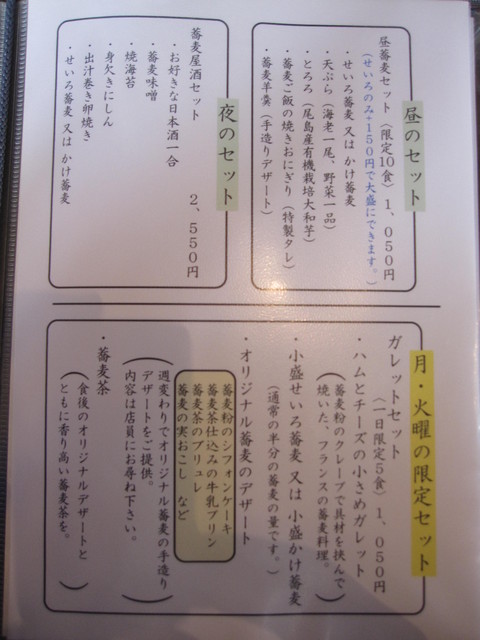 昼のセット
昼蕎麦セット(限定10食)1、050円
(せいろのみ+150円で大盛にできます。)
・せいろ蕎麦 又は かけ蕎麦
・天ぷら(海老一尾、野菜一品)
・とろろ(尾島産有機栽培大和芋)
・蕎麦ご飯の焼きおにぎり(特製タレ)
・蕎麦羊羹(手造りデザート)
夜のセット
蕎麦屋酒セット 2、550円
・お好きな日本酒一合
・蕎麦味噌
・焼海苔
・身欠きにしん
・出汁巻き卵焼き
・せいろ蕎麦 又は かけ蕎麦
月・火曜の限定セット
ガレットセット(一日限定5食)1、050円
・ハムとチーズの小さめガレット
(蕎麦粉のクレープで具材を挟んで
焼いた、フランスの蕎麦料理。)
・小盛せいろ蕎麦 又は 小盛かけ蕎麦
(通常の半分の蕎麦の量です。)
・オリジナル蕎麦のデザート
蕎麦粉のシフォンケーキ
蕎麦茶仕込みの牛乳プリン
蕎麦茶のブリュレ
蕎麦の実おこし など
(週変わりでオリジナル蕎麦の手造り
デザートをご提供。
内容は店員にお尋ね下さい。)
・蕎麦茶
(食後のオリジナルデザートと
ともに香り高い蕎麦茶を。)